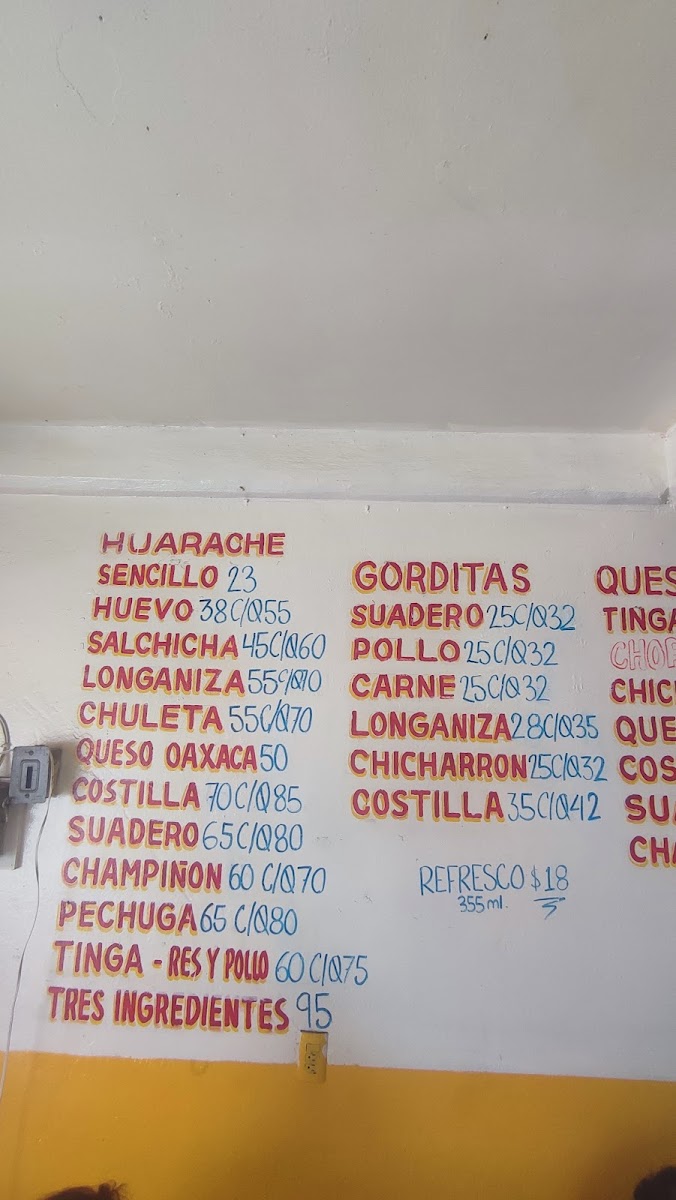 HUARACHE
SENCILLO 23
HUEVO 38 C/Q55
SALCHICHA 45C/Q60
LONGANIZA 55C/Q70
CHULETA 55C/Q70
QUESO OAXACA 50
COSTILLA 70 C/Q85
SUADERO 65 C/Q80
CHAMPIÑON 60 C/Q70
PECHUGA 65 C/Q80
TINGA - RES Y POLLO 60 C/Q75
TRES INGREDIENTES 95
GORDITAS
SUADERO 25C/Q32
POLLO 25C/Q32
CARNE 25C/Q32
LONGANIZA 28C/Q35
CHICHARRON 25C/Q32
COSTILLA 35C/Q42
REFRESCO $18
355 ml.
QUES
TINGA
CHOR
CHIC
QUE
COS
SUA
CHA